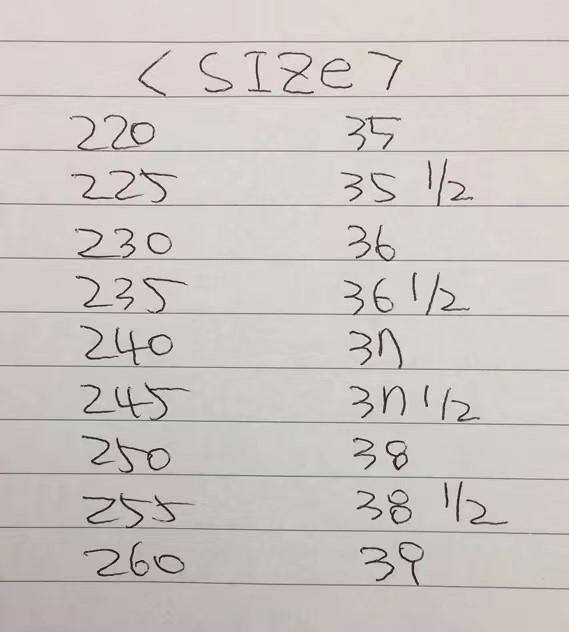 < SIZE >
220 35
225 35 1/2
230 36
235 36 1/2
240 37
245 37 1/2
250 38
255 38 1/2
260 39